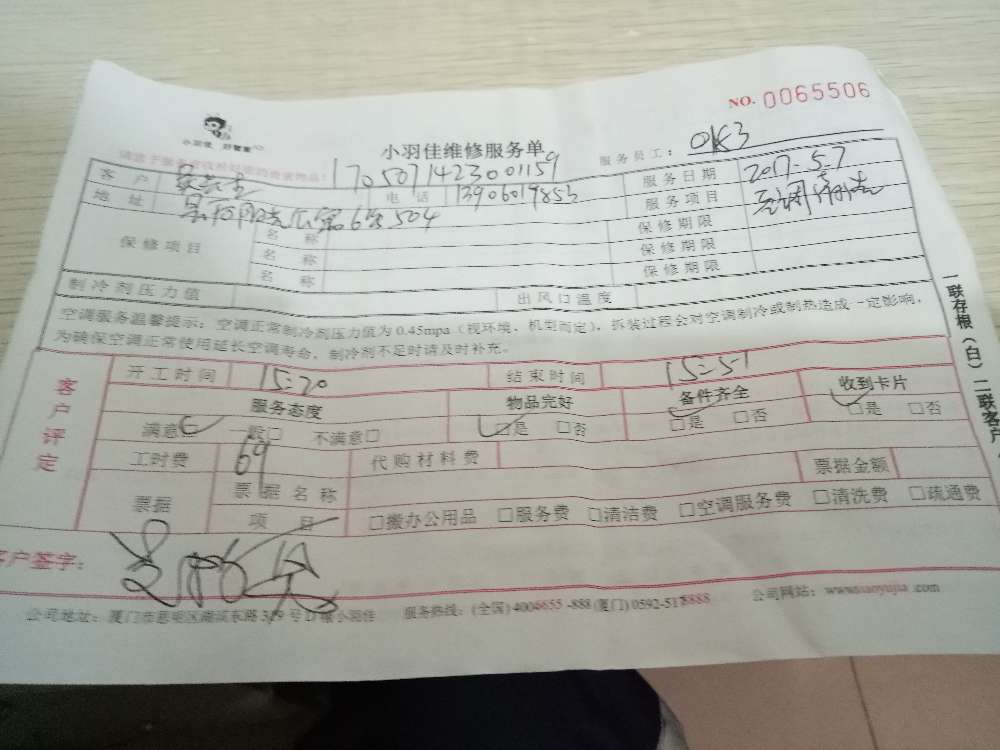 NO. 0065506
小羽佳 好管家
小羽佳维修服务单
服务员工： 0163
1705071423001159
客户
电话 13906019853
服务日期 2017.5.7
地址 504
服务项目 空调清洗
保修项目
名称
保修期限
名称
保修期限
名称
保修期限
制冷剂压力值
出风口温度
空调服务温馨提示：空调正常制冷剂压力值为0.45mpa（视环境、机型而定），拆装过程会对空调制冷或制热造成一定影响，
为确保空调正常使用延长空调寿命，制冷剂不足时请及时补充。
一联存根（白）二联客户
客户评定
开工时间 15:20
结束时间 15:51
服务态度
物品完好
备件齐全
收到卡片
满意□ 一般□ 不满意□
□是 □否
□是 □否
□是 □否
工时费 69
代购材料费
票据
票据名称
票据金额
项目
□搬办公用品 □服务费 □清洁费 □空调服务费 □清洗费 □疏通费
客户签字：
公司地址：厦门市思明区湖滨东路319号
服务热线：（全国）4006655-888（厦门）0592-518888
公司网站：www.xiaoyujia.com